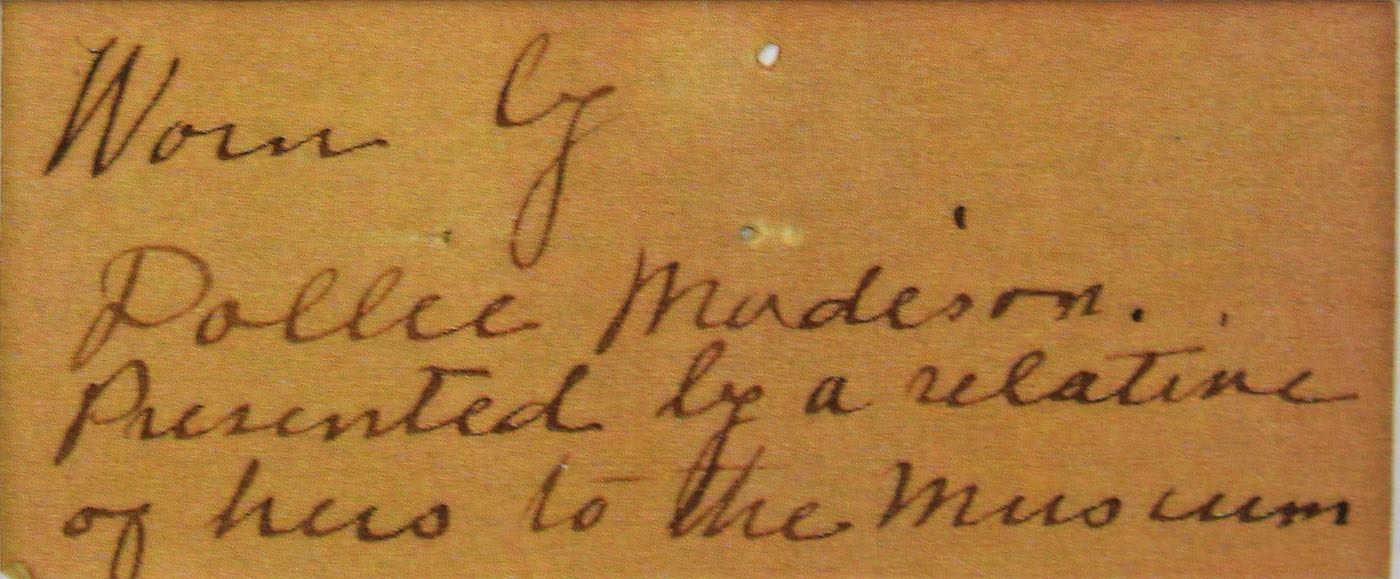 Worn by
Dollie Madison.
Presented by a relative
of hers to the Museum